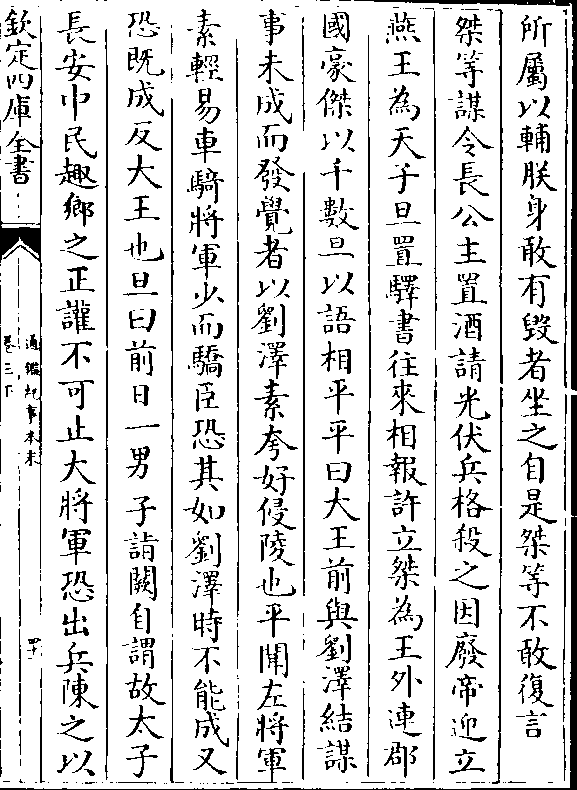 所屬以輔朕身敢有毀者坐之自是桀等不敢復言
桀等謀令長公主置酒請光伏兵格殺之因廢帝迎立
燕王為天子旦置驛書往來相報許立桀為王外連郡
國豪傑以千數旦以語相平平曰大王前與劉澤結謀
事未成而發覺者以劉澤素夸好侵陵也平聞左將軍
素輕易車騎將軍少而驕臣恐其如劉澤時不能成又
恐既成反大王也旦曰前日一男子詣闕自謂故太子
長安中民趣鄉之正讙不可止大將軍恐出兵陳之以
欽定四庫全書
通鑑紀事本末
卷三下